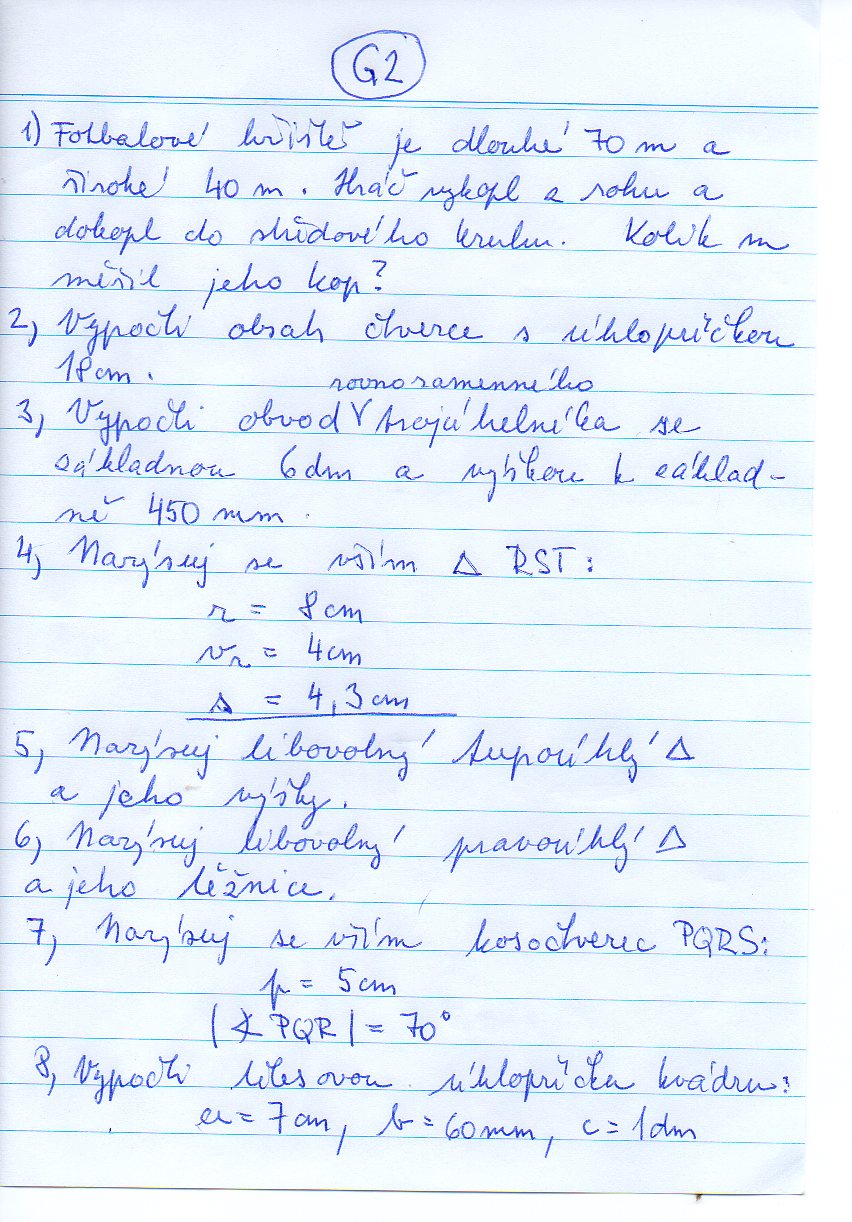 G2
1) Fotbalové hřiště je dlouhé 70 m a
široké 40 m. Hráč vykopl z rohu a
dokopl do středového kruhu. Kolik m
měřil jeho kop?
2, Vypočti obsah čtverce s úhlopříčkou
18cm.
rovnoramenného
3, Vypočti obvod V trojúhelníka se
základnou 6dm a výškou k základ-
ně 450 mm.
4, Narýsuj se vším △ RST:
r = 8cm
vr = 4cm
s = 4,3cm
5, Narýsuj libovolný tupoúhlý △
a jeho výšky.
6, Narýsuj libovolný pravoúhlý △
a jeho těžnice.
7, Narýsuj se vším kosočtverec PQRS:
p = 5cm
|∢ PQR| = 70°
8, Vypočti tělesovou úhlopříčku kvádru:
a = 7cm, b = 60mm, c = 1dm